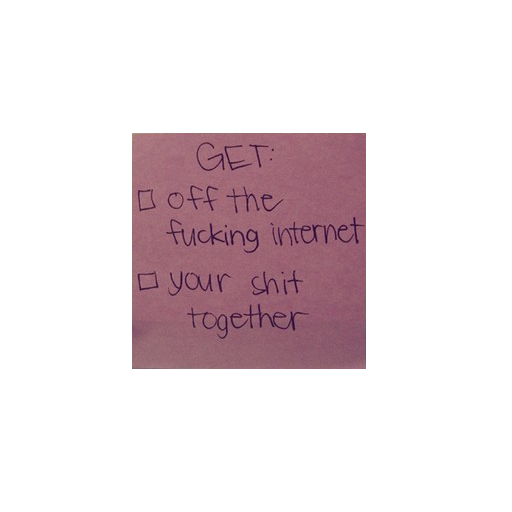 GET:
□ off the
fucking internet
□ your shit
together